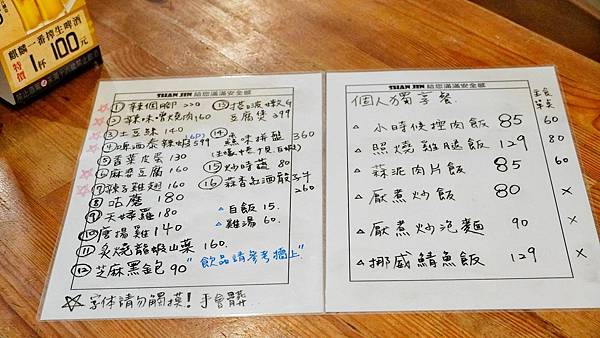 麒麟一番搾生啤酒
特價
1杯100元
TSIAN JIN 給您滿滿安全感
① 辣個腳 220
② 辣味燒肉 160
③ 土豆絲 140
④ 啤酒泰辣蝦 399
⑤ 香菜皮蛋 130
⑥ 麻婆豆腐 160
⑦ 辣子雞翅 160
⑧ 咕麈 180
⑨ 天婦羅 180
⑩ 唐揚雞 140
⑪ 炙燒龍蝦山葉 160.
⑫ 芝麻黑金包 90
豆腐煲 399
拼盤 360
⑮ 炒時蔬 80
260
△ 白飯 15.
△ 雞湯 60.
"飲品請參考牆上"
☆ 字体請勿觸摸! 手會髒
TSIAN JIN 給您滿滿安全感
個人獨享餐
主食
單点
△ 小時候控肉飯 85 60
△ 照燒雞腿飯 129 80
△ 蒜泥肉片飯 85 60
△ 厭煮炒飯 80 ×
△ 厭煮炒泡麵 90 ×
△ 挪威鯖魚飯 129 ×